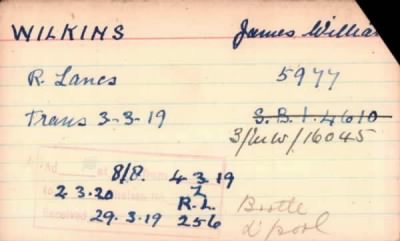 WILKINS James William
R. Lancs 5977
Trans 3-3-19 S.B.1.4610
3/MW/16045
8/8. 4 3.19
2.3.20 R.L.
Received 29.3.19 256
Bootle
L'pool